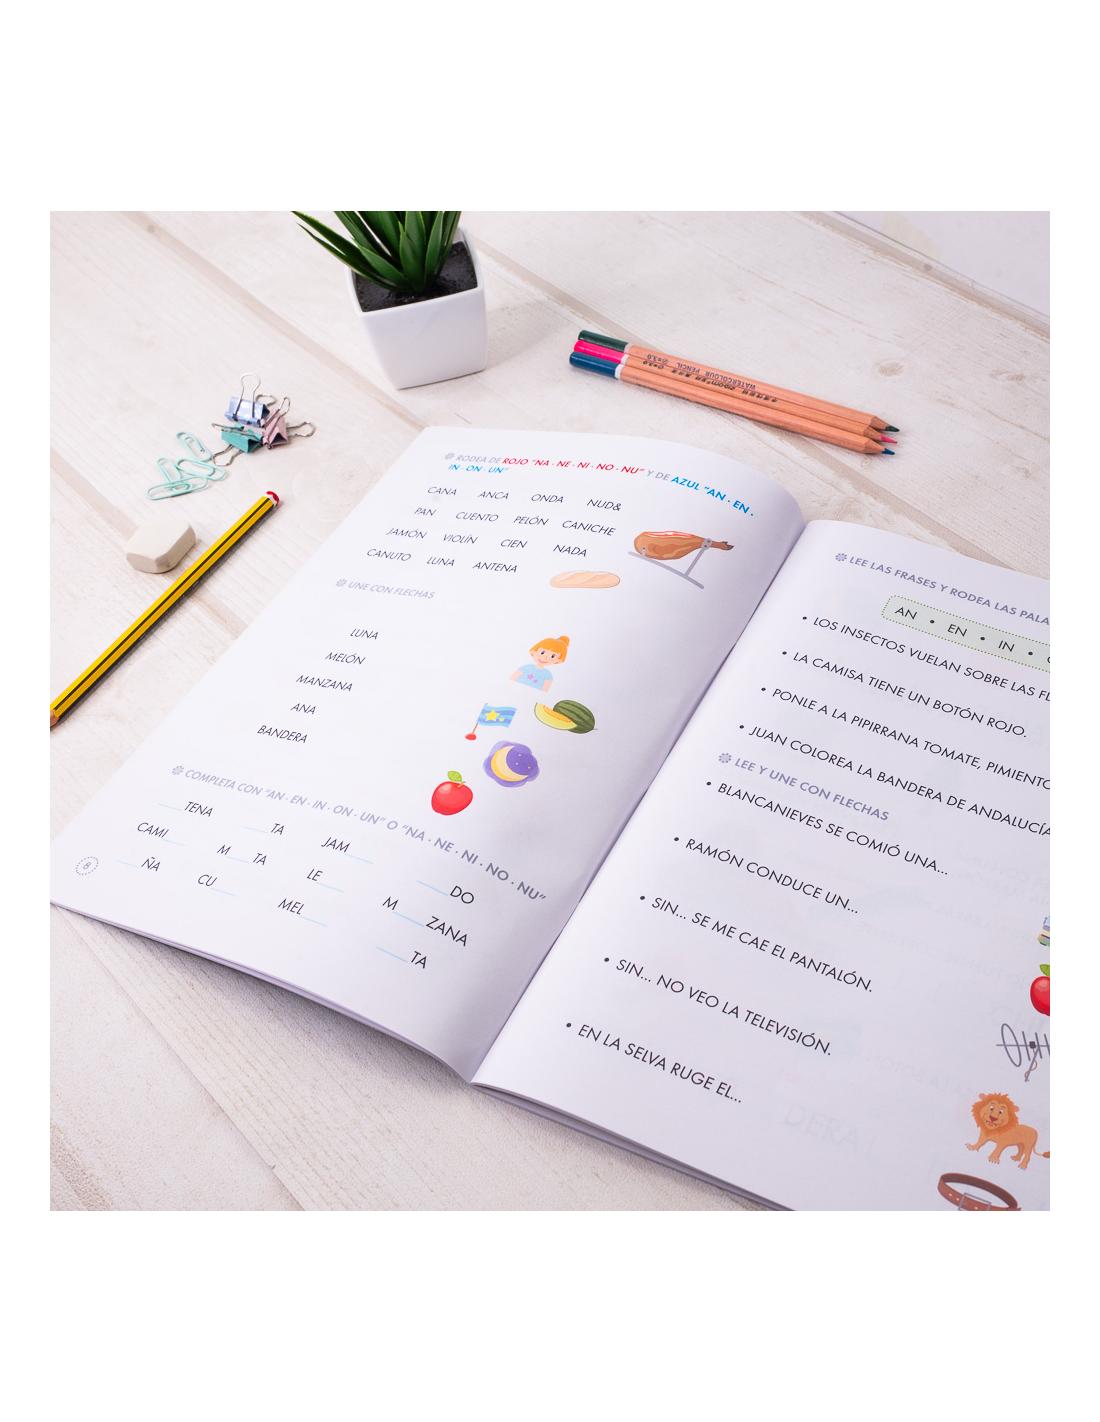 RODEA DE ROJO "NA · NE · NI · NO · NU" Y DE AZUL "AN · EN ·
IN · ON · UN"
CANA ANCA ONDA NUD&
PAN CUENTO PELÓN CANICHE
JAMÓN VIOLÍN CIEN NADA
CANUTO LUNA ANTENA
UNE CON FLECHAS
LUNA
MELÓN
MANZANA
ANA
BANDERA
COMPLETA CON "AN · EN · IN · ON · UN" O "NA · NE · NI · NO · NU"
___TENA ___TA JAM___ ___DO
CAMI___ M___TA LE___ M___ZANA
___ÑA CU___ MEL___ ___TA
8
LEE LAS FRASES Y RODEA LAS PALA
AN • EN • IN •
• LOS INSECTOS VUELAN SOBRE LAS FL
• LA CAMISA TIENE UN BOTÓN ROJO.
• PONLE A LA PIPIRRANA TOMATE, PIMIENTO
• JUAN COLOREA LA BANDERA DE ANDALUCÍA
LEE Y UNE CON FLECHAS
• BLANCANIEVES SE COMIÓ UNA...
• RAMÓN CONDUCE UN...
• SIN... SE ME CAE EL PANTALÓN.
• SIN... NO VEO LA TELEVISIÓN.
• EN LA SELVA RUGE EL...
WATERCOLOUR PENCIL